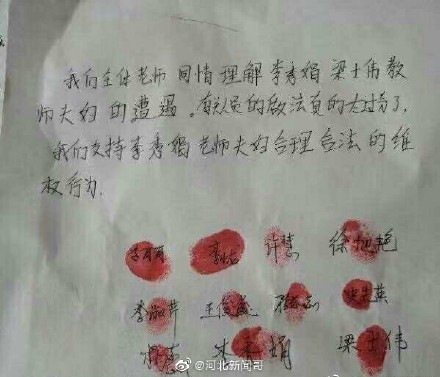 我们全体老师同情理解李秀娟梁士伟教
师夫妇的遭遇。有些人的做法真的太过分了,
我们支持李秀娟老师夫妇合理合法的维
权行为.
李丽 许慧 徐旭艳
李淑芹 王俊
朱秀娟 梁士伟
@河北新闻哥